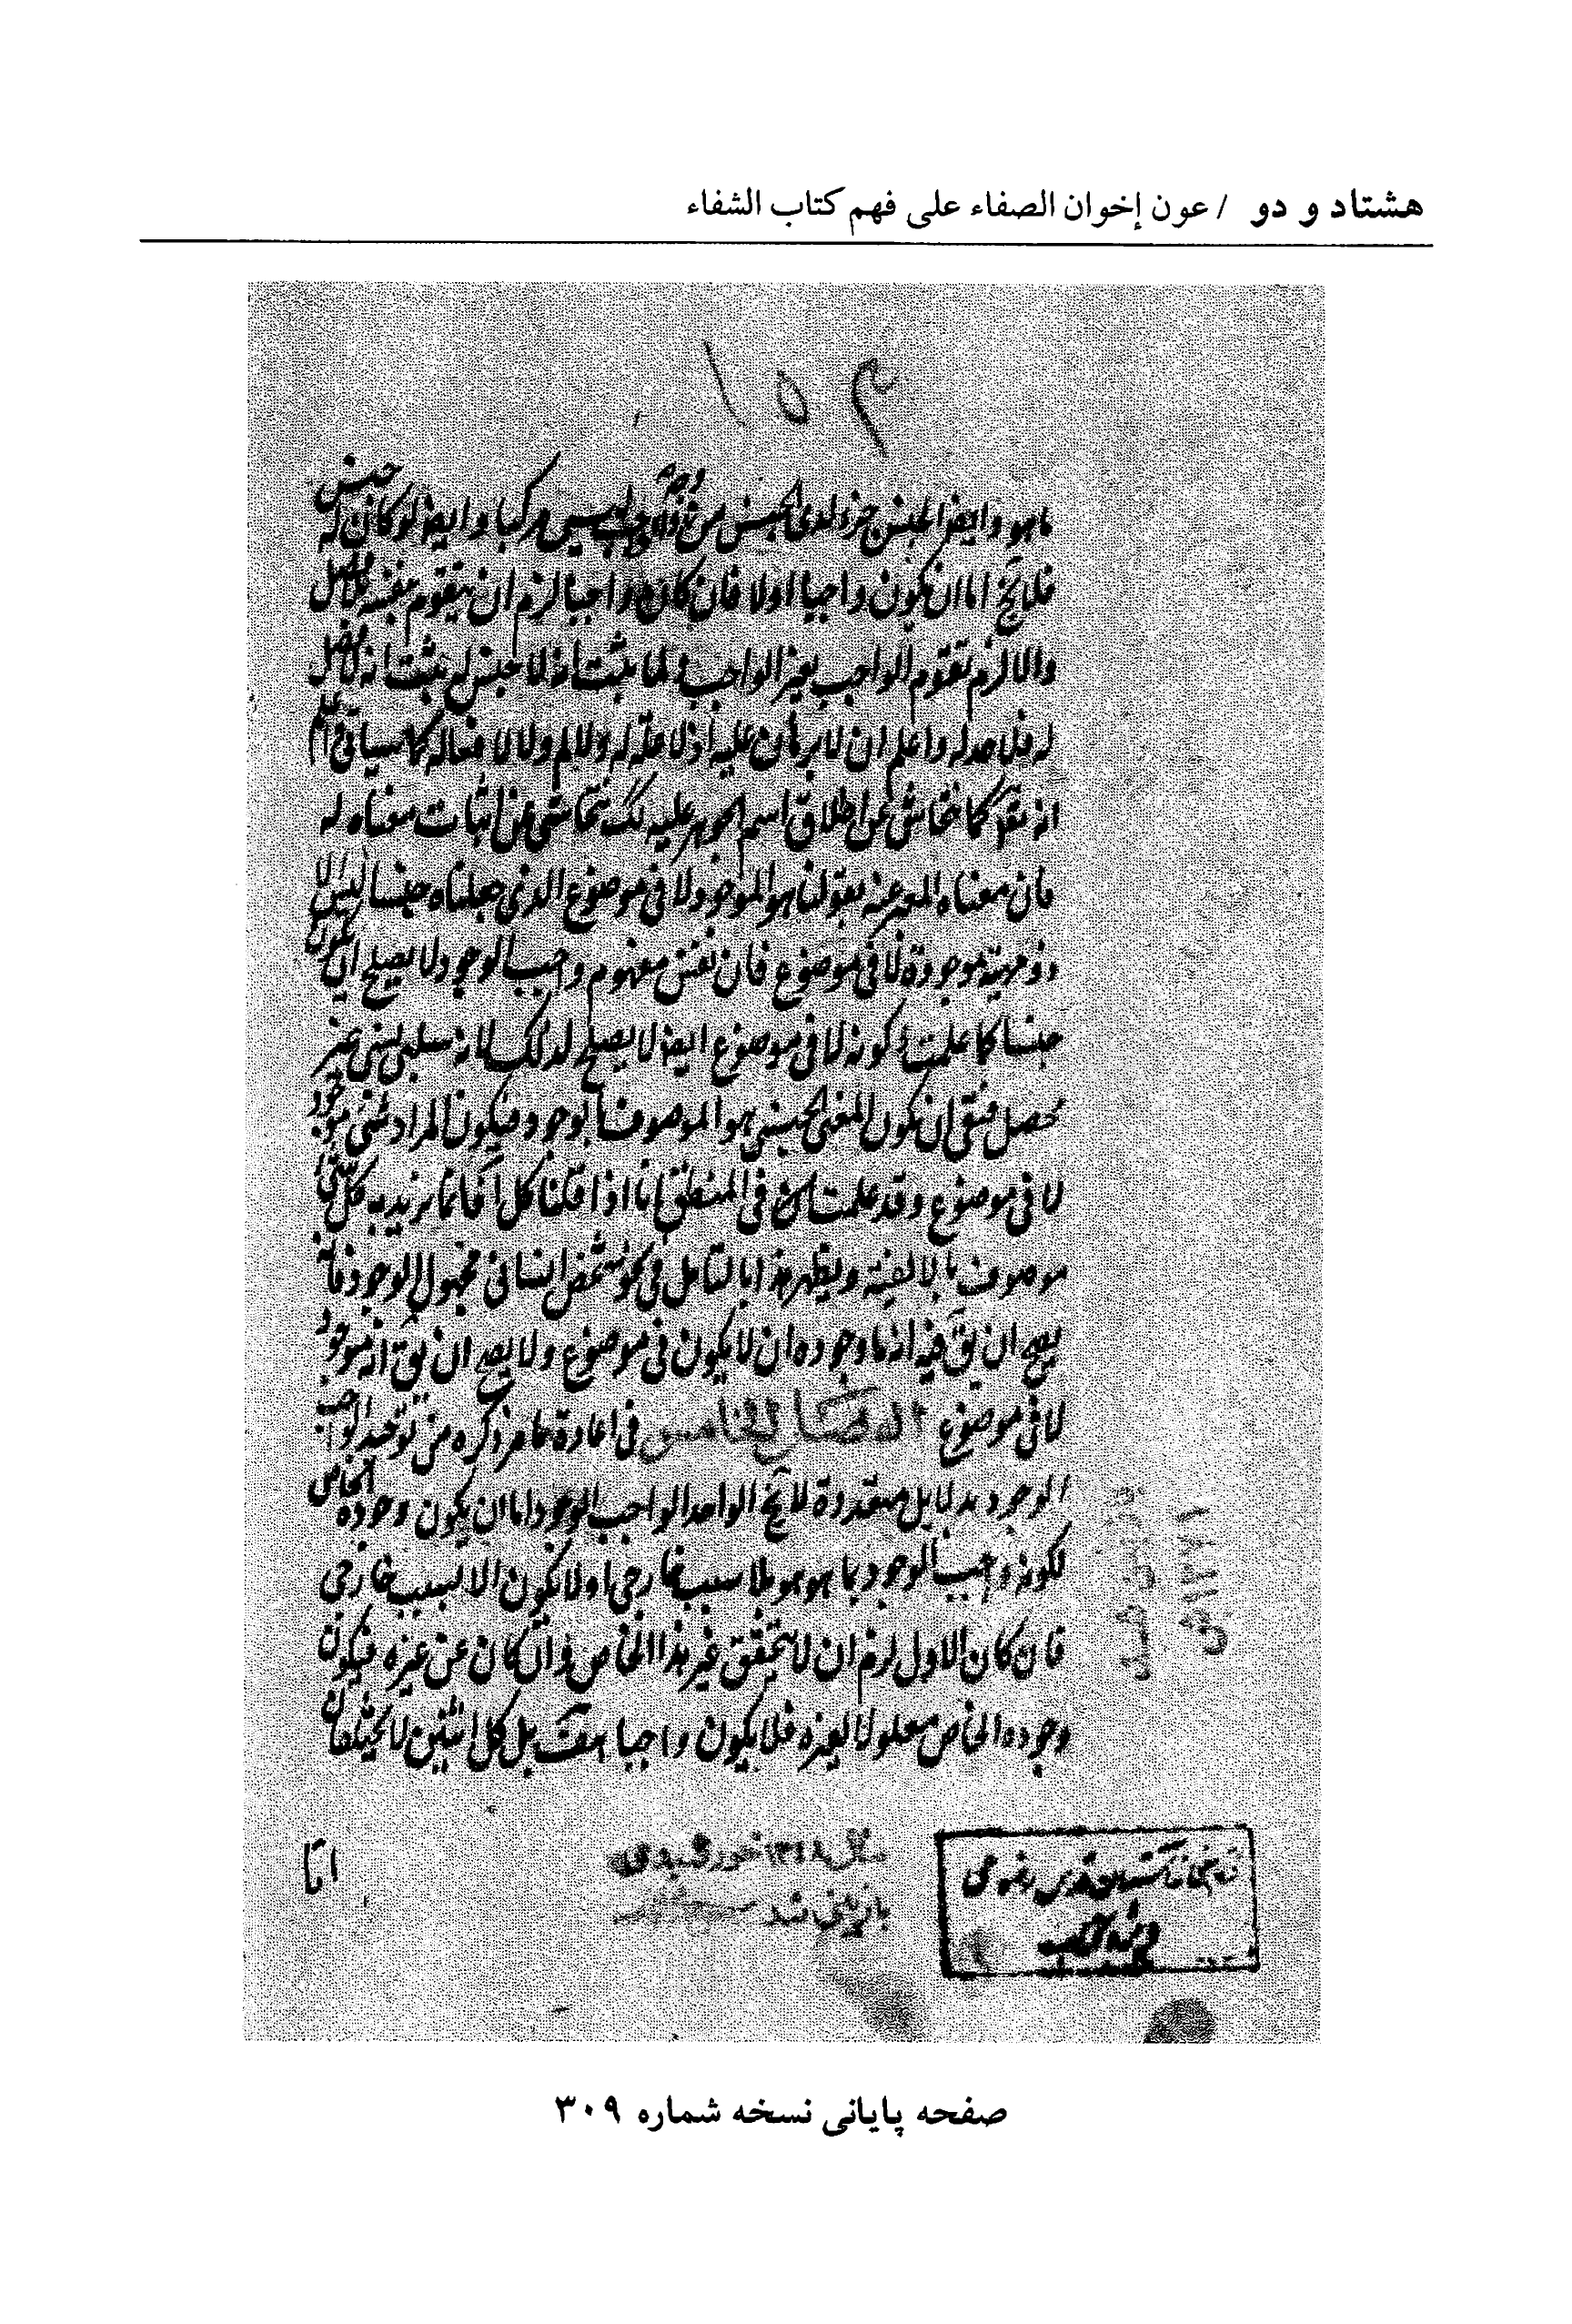 هشتاد و دو / عون إخوان الصفاء على فهم كتاب الشفاء
ماهو وايض الجنس جزء لذى الجنس من وجه وليس مركبا وايض لو كان له جنس
فلايخ اما ان يكون واجبا اولا فان كان واجبا لزم ان يتقوم بنفسه فصل
والا لزم تقوم الواجب بغير الواجب ولما ثبت انه لا جنس له ثبت انه لا فصل
له فلا حد له واعلم ان لا برهان عليه اذ لا علة له ولا لم ولا لافعاله كما سياتى
انه كما تحاش عن اطلاق اسم الجوهر عليه تحاشى عن اثبات معناه له
فان معناه المعبر عنه بقولنا هو الموجود لا فى موضوع الذى جعلناه جنسا ليس الا
ذو مهية موجودة لا فى موضوع فان نفس مفهوم واجب الوجود لا يصلح ان يكون
جنسا كما علمت وكونه لا فى موضوع ايض لا يصلح لذلك لانه سلبى ليس غير
محصل فبقى ان يكون المعنى الجنسى هو الموصوف بالوجود فيكون المراد شىء موجود
لا فى موضوع وقد علمت فى المنطق انا اذا قلنا كل آ فانما نريد به كل شىء
موصوف بالالفية ويظهر هذا بالتامل فى نحو شخص انسانى مجهول الوجود فانه
يصح ان يق فيه انه ما وجوده ان لا يكون فى موضوع ولا يصح ان يق انه موجود
لا فى موضوع الفصل الخامس فى اعادة ما مر ذكره من توحيد الواجب
الوجود بدلايل متعددة لا يخ الواحد الواجب الوجود اما ان يكون وجوده الخاص
لكونه واجب الوجود بما هو هو بلا سبب خارجى او لا يكون الا لسبب خارجى
فان كان الاول لزم ان لا يتحقق غير هذا الخاص وان كان عن غيره فيكون
وجوده الخاص معلولا لغيره فلا يكون واجبا هف بل كل اثنين لا يختلفان
اما
سال ١٣٤٨ خورشيدى
بازبينى شد
كتابخانه آستان قدس رضوى
صفحه پایانی نسخه شماره ۳۰۹